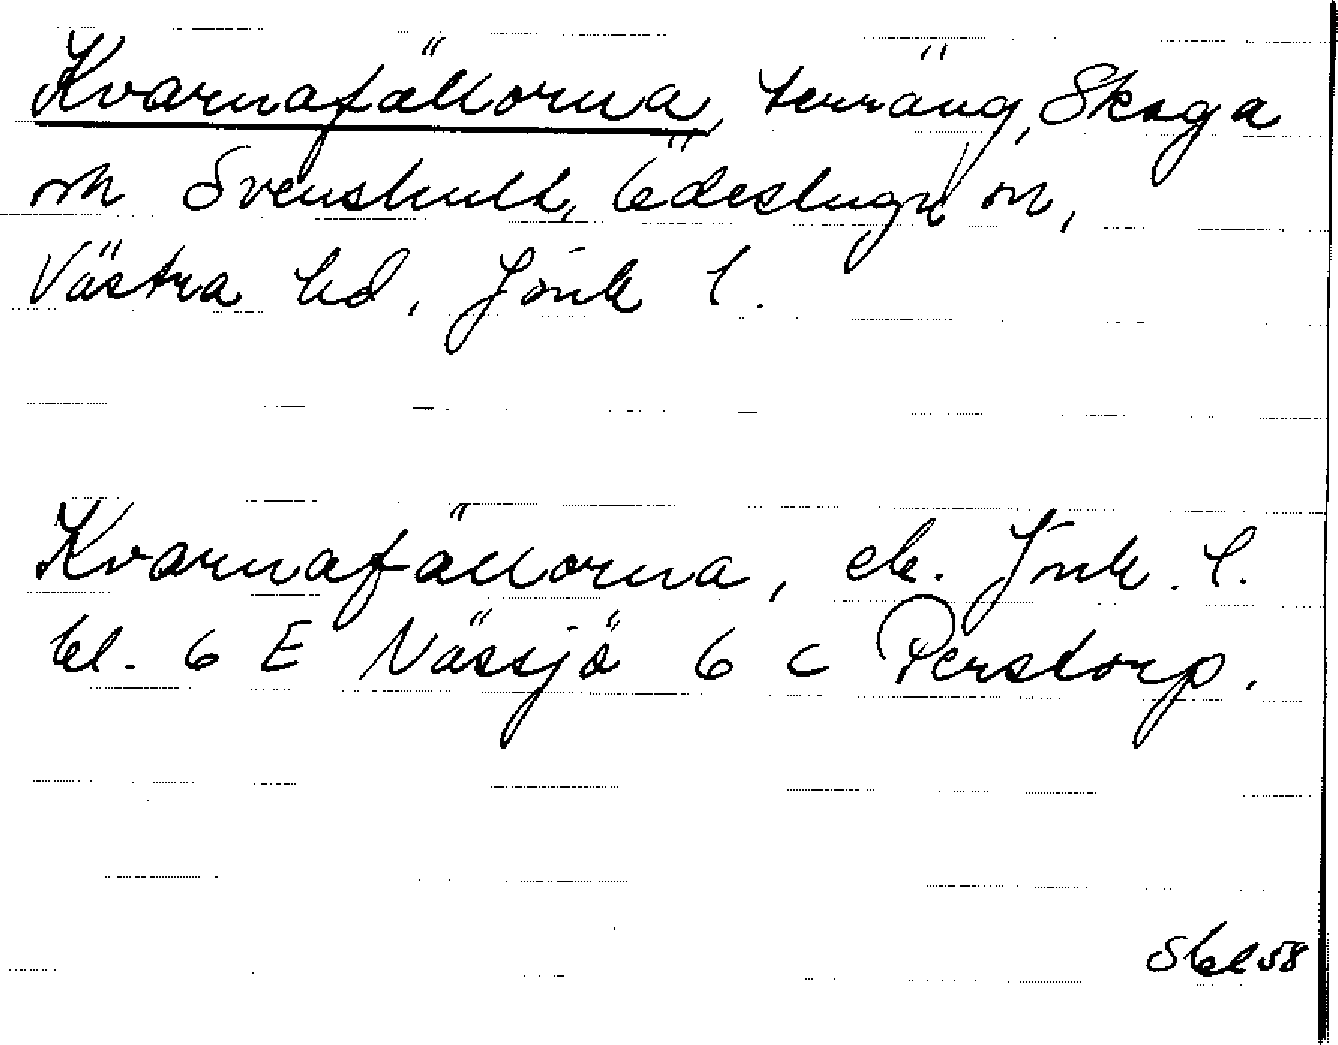 Kvarnafällorna, terräng, Skoga
och Svenshult, Ödestugu sn,
Västra hd, Jönk l.
Kvarnafällorna, ek. Jönk. l.
bl. 6 E Nässjö 6 c Perstorp.